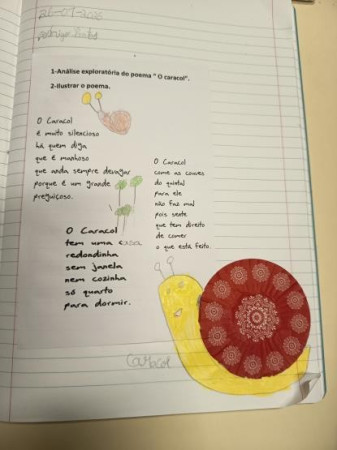 1-Análise exploratória do poema " O caracol".
2-Ilustrar o poema.
O Caracol
é muito silencioso
há quem diga
que é manhoso
que anda sempre devagar
porque é um grande
preguiçoso.
O Caracol
come as couves
do quintal
para ele
não faz mal
pois sente
que tem direito
de comer
o que está feito.
O Caracol
tem uma casa
redondinha
sem janela
nem cozinha
só quarto
para dormir.
Caracol